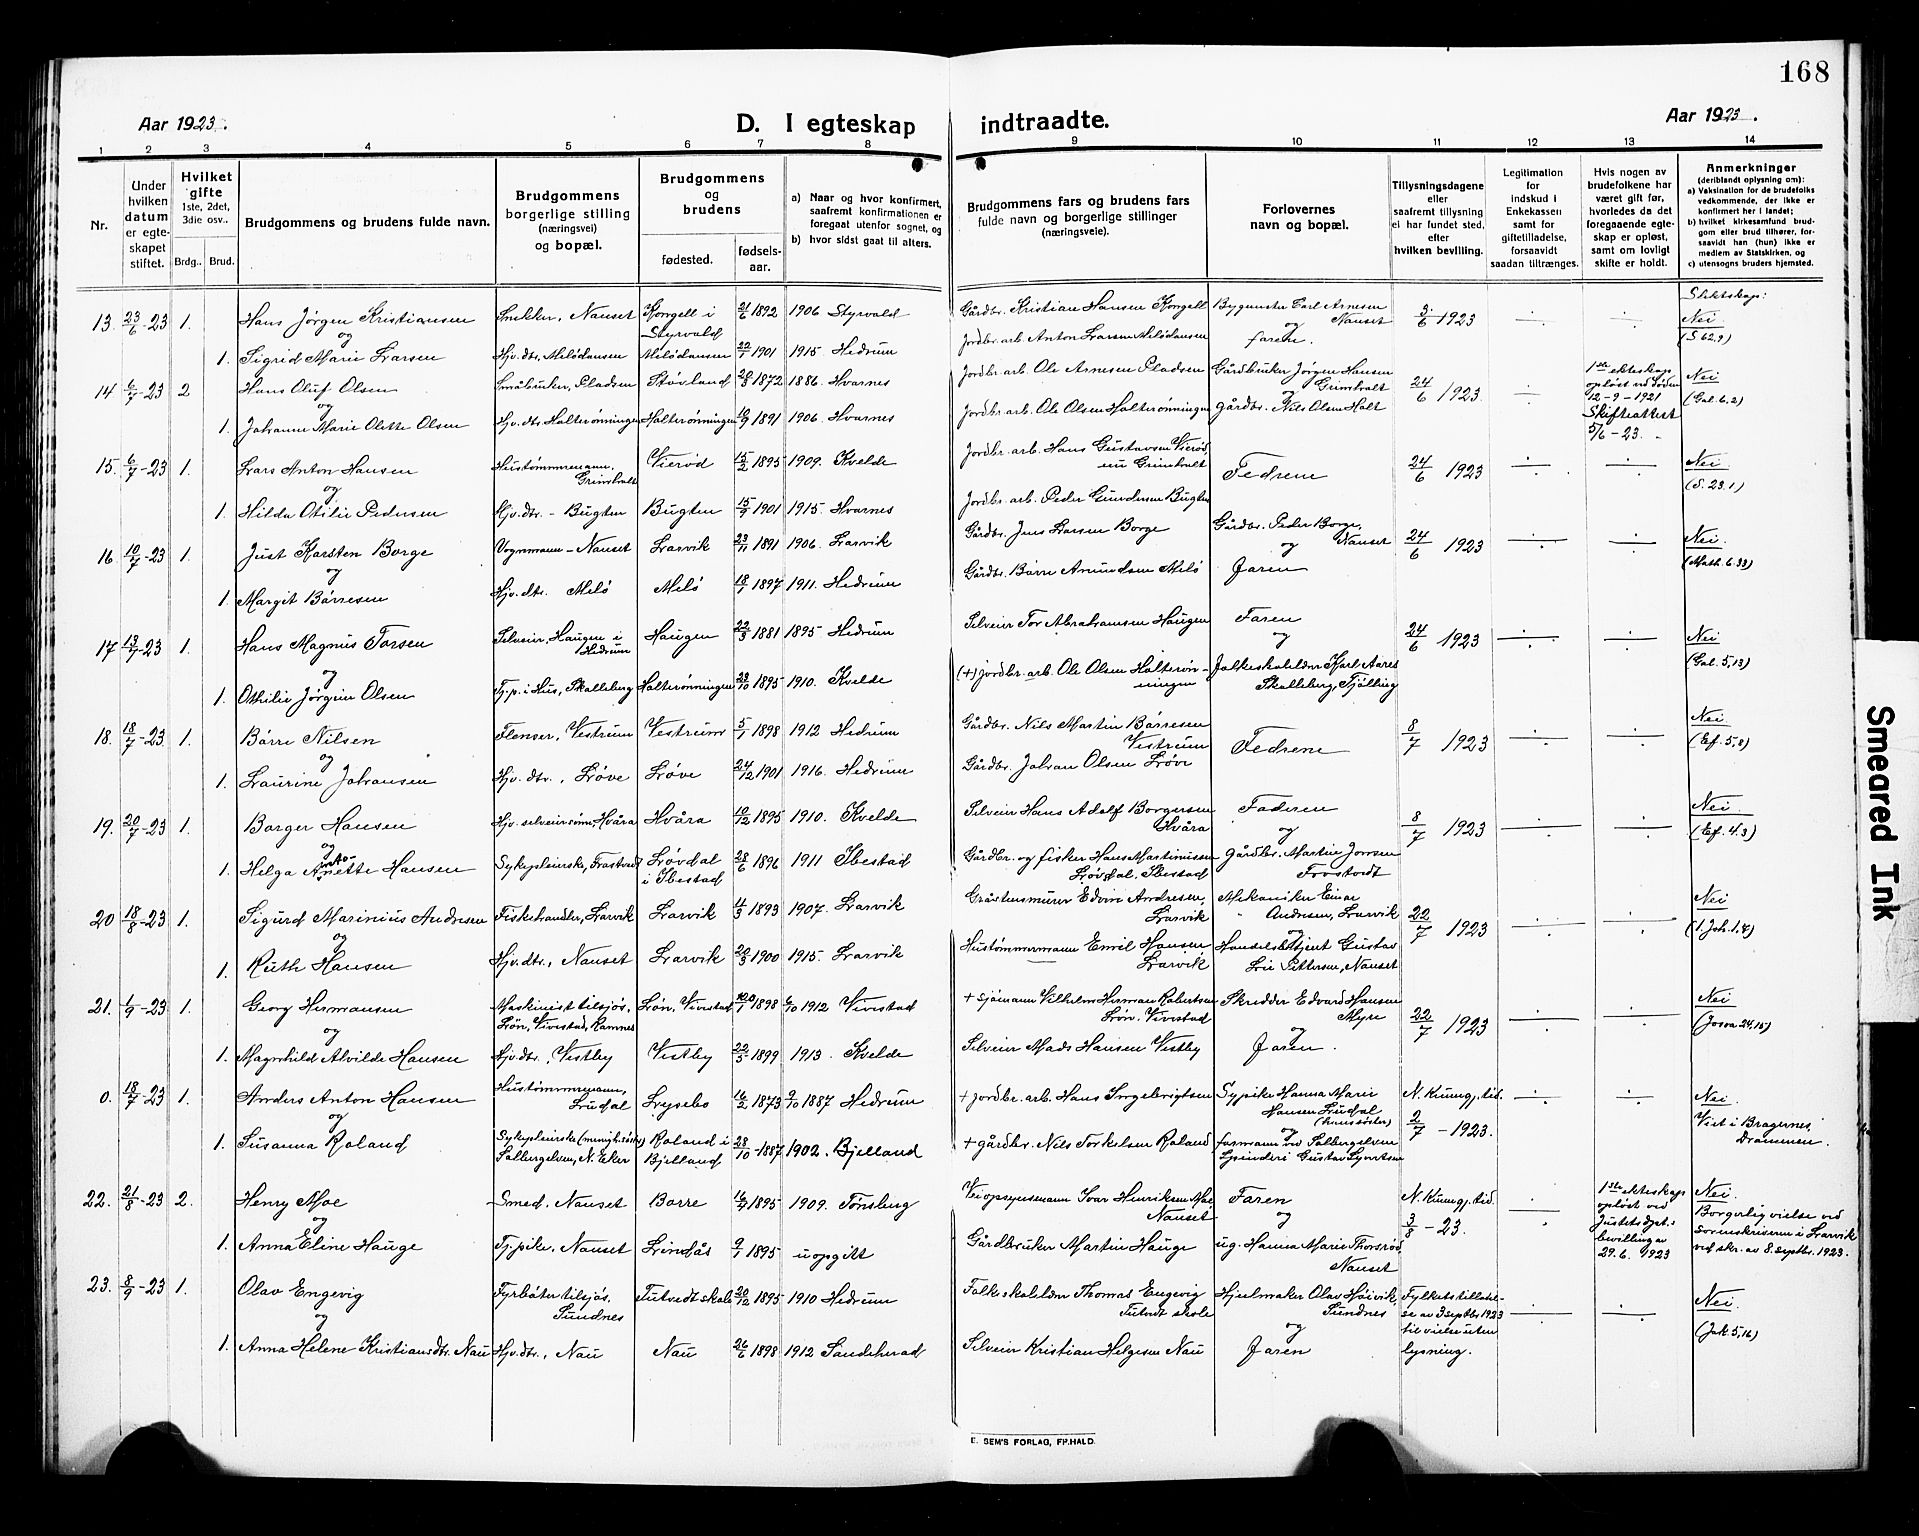 168
Aar 1923.
D. I egteskap indtraadte.
Aar 1923.
1 2 3 4 5 6 7 8 9 10 11 12 13 14
Nr.
Under hvilken datum er egteskapet stiftet.
Hvilket gifte 1ste, 2det, 3die osv..
Brdg.. Brud.
Brudgommens og brudens fulde navn.
Brudgommens borgerlige stilling (næringsvei) og bopæl.
Brudgommens og brudens
fødested.
fødselsaar.
a) Naar og hvor konfirmert, saafremt konfirmationen er foregaat utenfor sognet, og
b) hvor sidst gaat til alters.
Brudgommens fars og brudens fars fulde navn og borgerlige stillinger (næringsveie).
Forlovernes navn og bopæl.
Tillysningsdagene eller saafremt tillysning ei har fundet sted, efter hvilken bevilling.
Legitimation for indskud i Enkekassen samt for giftetilladelse, forsaavidt saadan tiltrænges.
Hvis nogen av brudefolkene har været gift før, hvorledes da det foregaaende egteskap er opløst, samt om lovligt skifte er holdt.
Anmerkninger (deriblandt oplysning om):
a) Vaksination for de brudefolks vedkommende, der ikke er konfirmert her i landet;
b) hvilket kirkesamfund brudgom eller brud tilhører, forsaavidt han (hun) ikke er medlem av Statskirken, og
c) utensogns bruders hjemsted.
13. 23/6-23 1. Hans Jørgen Kristiansen Snekker, Nauset Kongell i Styrvold 21/6 1892 1906 Styrvold Gårdbr. Kristian Hansen Kongell Bygmester Carl Arnesen Nauset 3/6 1923 Slektskap: Nei
og faren. (S 62.9)
1. Sigrid Marie Larsen Hjv. dtr. Melødansen Melødansen 22/7 1901 1915. Hedrum Jordbr. arb. Anton Larsen Melødansen
14 6/7-23 2 Hans Oluf Olsen Småbruker, Pladsen Støvland 20/8 1872 1886. Hvarnes Jordbr. arb. Ole Arnesen Pladsen Gårdbruker Jørgen Hansen Grimholt 24/6 1923. 1ste ekteskap opløst ved døden 12-9-1921 Skifteattest 5/6-23. Nei (Gal. 6.2)
og
1. Johanne Marie Olette Olsen Hjv. dtr. Holterønningen Holterønningen 10/9 1891 1906. Hvarnes Jordbr. arb. Ole Olsen Holterønningen Gårdbr. Nils Olsen Holt
15. 6/7-23 1. Lars Anton Hansen Hustømmermann, Grimholt Vierød 15/2 1895 1909. Kvelde Jordbr. arb. Hans Gustavsen Vierød, nu Grimholt Fedrene 24/6 1923 Nei (S. 23.1)
og
1. Hilda Otilie Pedersen Hjv. dtr. - Bugten Bugten 15/9 1901 1915. Hvarnes Jordbr. arb. Peder Gundersen Bugten
16 10/7-23 1. Just Karsten Borge Vognmann - Nauset Larvik 23/11 1891 1906. Larvik Gårdbr. Jens Larsen Borge Gårdbr. Peder Borge, Nauset 24/6 1923 Nei. (Math. 6.33)
og
1. Margit Børresen Hjv. dtr. Melø Melø 18/7 1897 1911. Hedrum Gårdbr. Børre Amundsen Melø Faren
17 13/7-23 1. Hans Magnus Torsen Selveier, Haugen i Hedrum Haugen 22/3 1881 1895. Hedrum Selveier Tor Abrahamsen Haugen Faren 24/6 1923 Nei (Gal. 5,13)
og
1. Othilie Jørgine Olsen Tj.p. i Hus, Skalleberg Holterønningen 23/10 1895 1910. Kvelde (+) jordbr. arb. Ole Olsen Holterønningen Folkeskolelærer Karl Aares Skalleberg, Tjølling
18. 18/7-23 1. Børre Nilsen Flenser, Vestrum Vestrum 5/1 1898 1912 Hedrum Gårdbr. Nils Martin Børresen Vestrum Fedrene 8/7 1923 Nei (Ef. 5,8)
og
1. Laurine Johansen Hjv. dtr., Løve Løve 24/12 1901 1916. Hedrum Gårdbr. Johan Olsen Løve
19. 20/7-23 1. Borger Hansen Hjv. selveiersønn, Hvåra Hvåra 10/12 1895 1910. Kvelde Selveier Hans Adolf Borgersen Hvåra Faderen 8/7 1923 Nei. (Ef. 4.3)
og
1. Helga Antonette Hansen Sykepleierske, Frostvedt Løvdal i Ibestad 28/6 1896 1911 Ibestad Gårdbr. og fisker Hans Martinussen Løvdal, Ibestad Gårdbr. Martin Jonsen Frostvedt
20 18/8-23 1. Sigurd Marinius Andresen Fiskehandler, Larvik Larvik 4/3 1893 1907. Larvik Gråstensmurer Edvin Andresen, Larvik Mekaniker Einar Andresen, Larvik 22/7 1923 Nei (1. Joh. 1.4)
og
1. Ruth Hansen Hjv. dtr., Nauset Larvik 20/3 1900 1915. Larvik Hustømmermann Emil Hansen Larvik Handelsbetjent Gustav Lie Pettersen, Nauset
21. 1/9-23 1. Georg Hermansen Maskinist tilsjøs, Løn, Vivestad, Ramnes Løn, Vivestad 20/7 1898 6/10 1912 Vivestad + Sjømann Vilhelm Herman Robertsen Løn, Vivestad Skredder Edvard Hansen Myre 22/7 1923 Nei (Josva 24,15)
og
1. Magnhild Alvilde Hansen Hjv. dtr., Vestby Vestby 22/5 1899 1913. Kvelde Selveier Mads Hansen Vestby Faren.
0. 18/7-23 1. Anders Anton Hansen Hustømmermann, Ludal Lysebo 16/2 1873 2/10 1887 Hedrum + Jordbr. arb. Hans Ingebrigtsen Sypike Hanna Marie Hansen Ludal N. Kunngj. tid. 2/7-1923. Nei. Viet i Bragernes, Drammen.
og
1. Susanna Roland Sykepleierske Solbergelven, N. Eker Roland i Bjelland 28/10-1887 1902. Bjelland + gårdbr. Nils Torkelsen Roland formann ved Solbergelven Spinderi Gustav Syvertsen
22. 21/8-23 2. Henry Moe Smed, Nauset Borre 16/4 1895 1909. Tønsberg Veiopsynsmann Ivar Henriksen Moe, Nauset Faren N. Kunngj. tid. 3/8-23. 1ste ekteskap opløst ved Justitsdept.s bevilling av 29.6.1923 Nei. Borgerlig vielse ved sorenskriveren i Larvik ved skr. av 8. septbr. 1923.
og
1. Anna Eline Hauge Tj. pike, Nauset Lindås 9/1 1895 uopgitt Gårdbruker Martin Hauge ug. Hanna Marie Thorsrød, Nauset
23. 8/9-23 1. Olav Engevig Fyrbøter tilsjøs, Sundnes Tutvedt skole 20/12 1895 1910 Hedrum Folkeskolelærer Thomas Engevig Tutvedt skole Hjulmaker Olav Høivik, Sundnes Fylkets tillatelse av 3 septbr. 1923 til vielse uten lysning. Nei. (Jak. 5,16)
og
1. Anna Helene Kristiansdtr. Nau Hjv. dtr., Nau Nau 26/6 1898 1912 Sandeherad Selveier Kristian Helgesen Nau Faren
E. SEM'S FORLAG, FR.HALD.
Smeared Ink